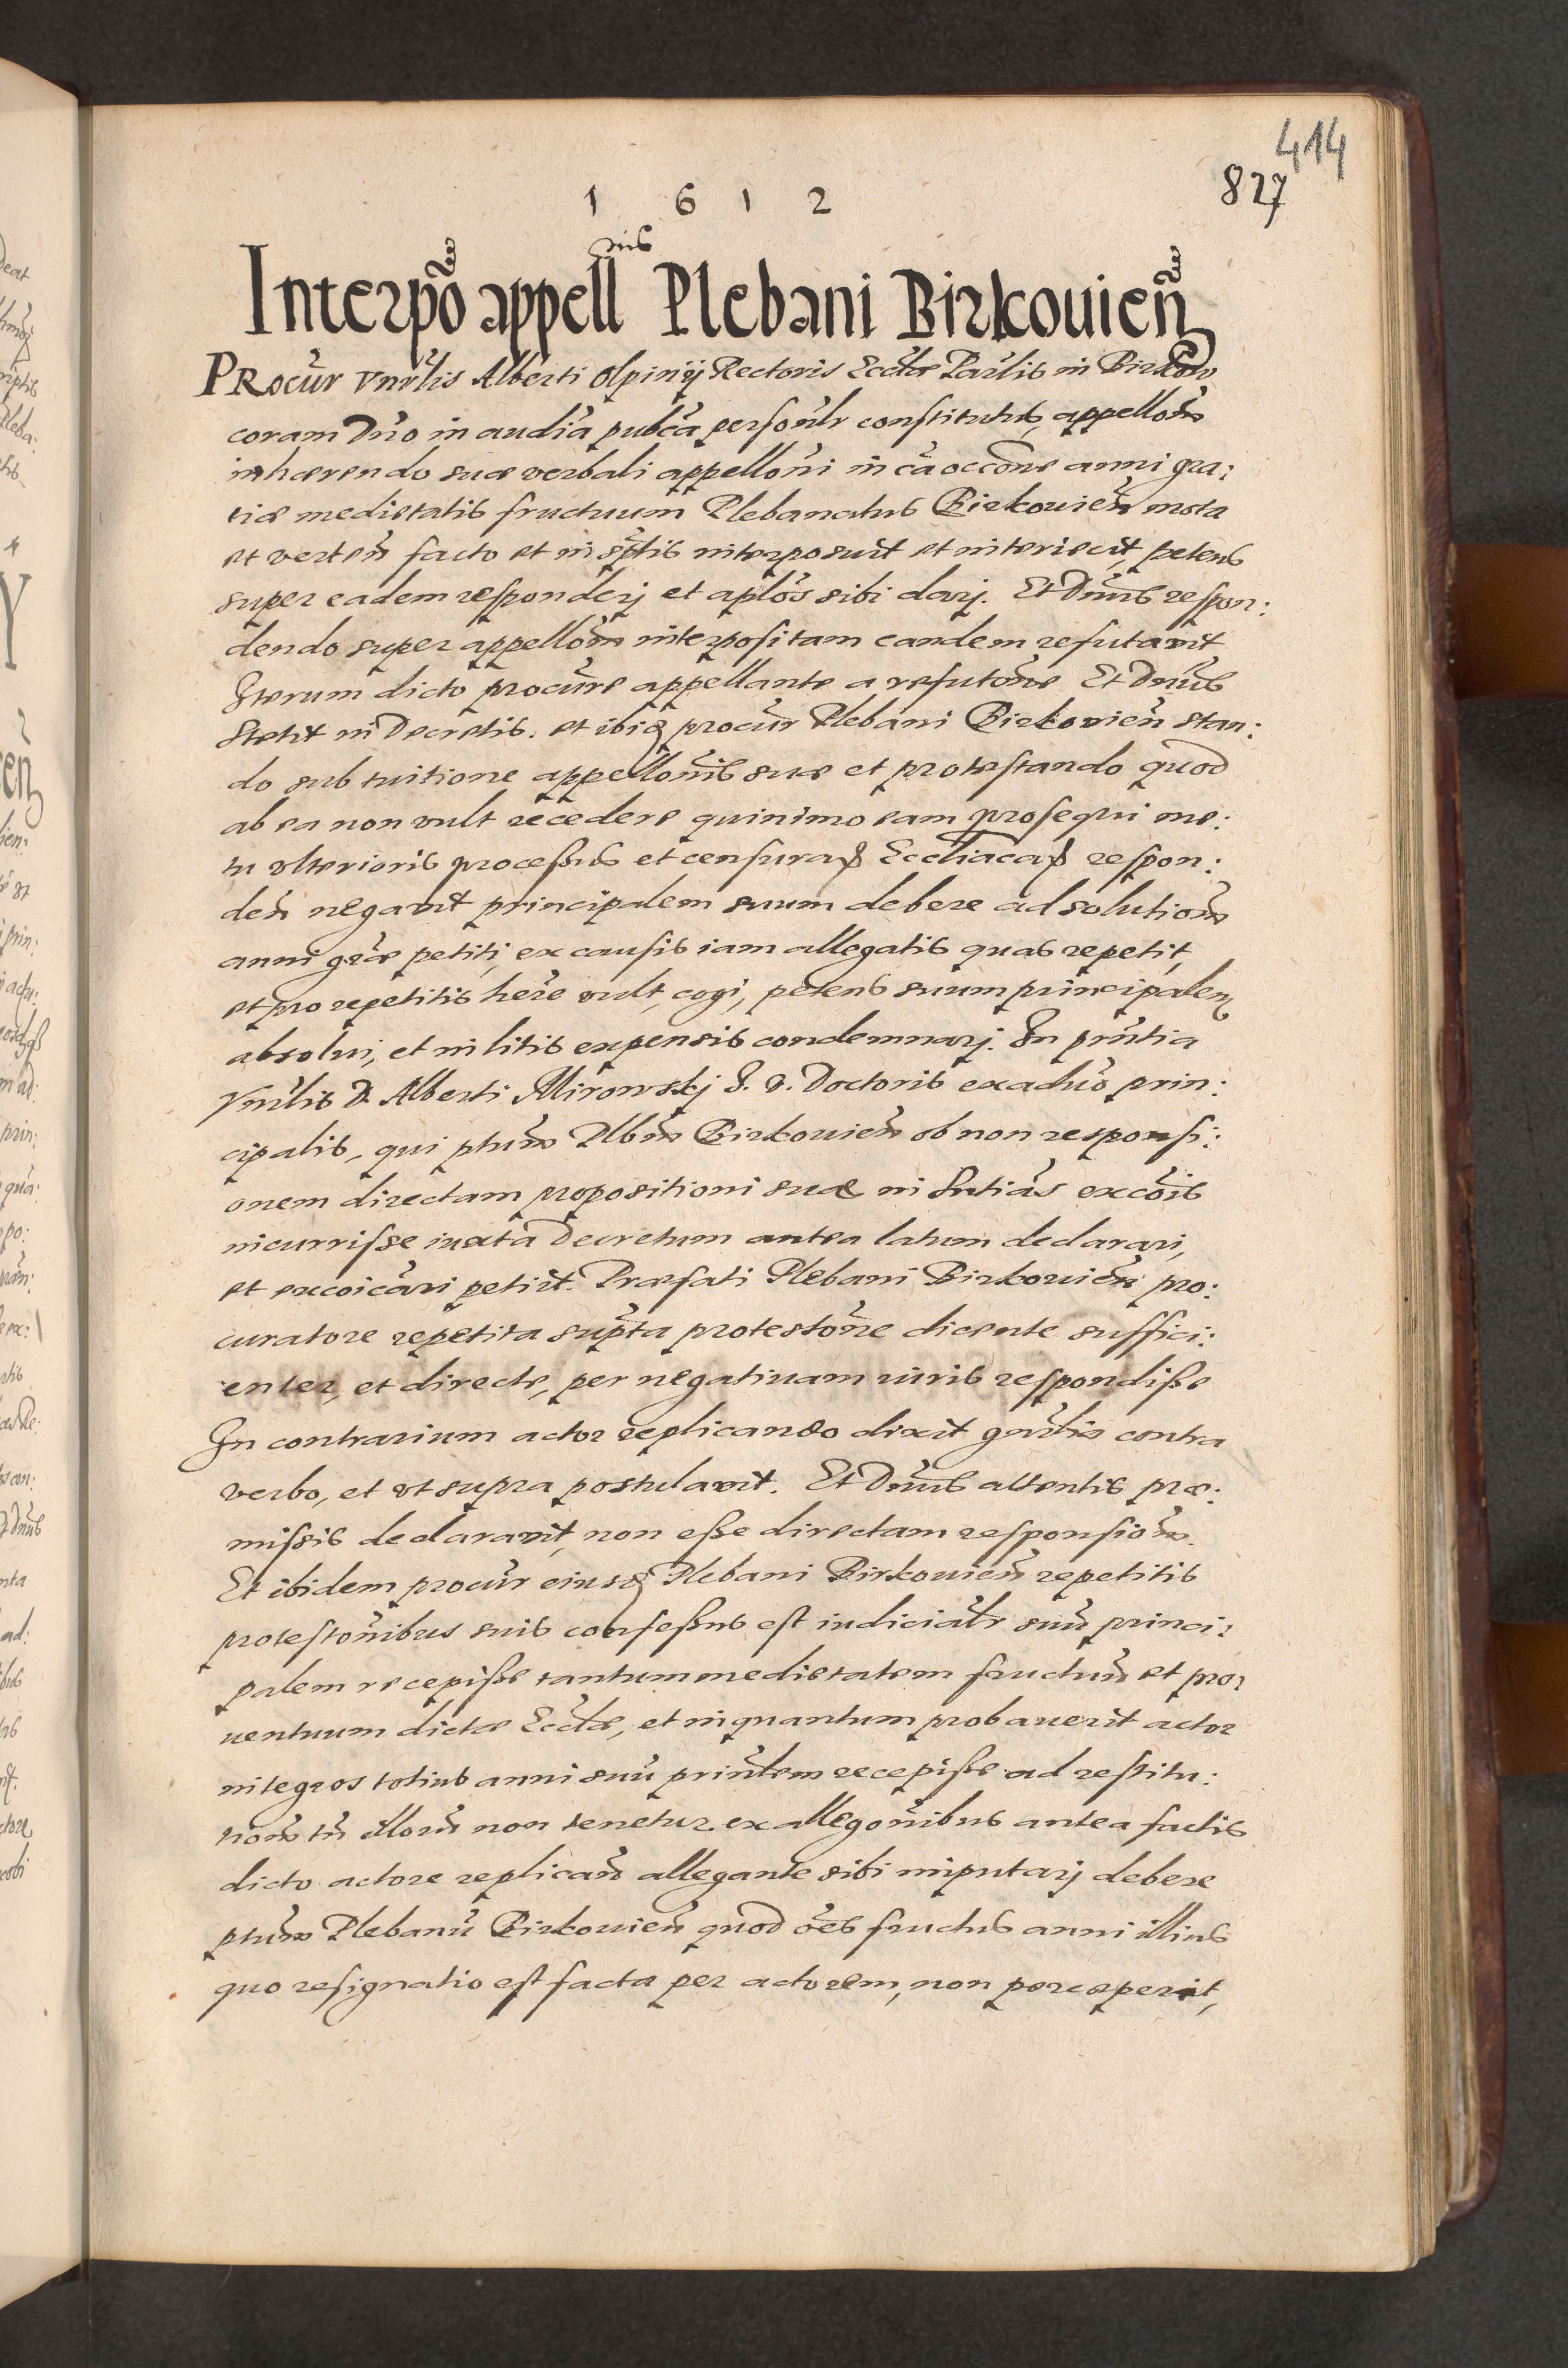 414
827
1 6 1 2
Interpõ appellnis Plebani Birkouień
PRocur̃ Vnr̃lis Alberti Olpinij Rectoris Eccl̃æ Par̃lis in Birkow
coram Dño in audĩa publ̃ca persoñlr constitutus, appelloñ
inhærendo suæ verbali appelloñi in cã occõne anni gra:
tiæ medietatis fructuum Plebanatus Birkouień mota
et verteñ facto et in sc̃ptis interposuit et interiecit, petens
super eadem responderj et ap̃los sibi darj. Et Dñus respon:
dendo super appelloñ interpositam eandem refutauit
Iterum dicto procur̃e appellante a refutoñe Et Dñus
Stetit in Decretis. et ibid procur̃ Plebani Birkouień stan:
do sub tuitione appelloñis suæ et protestando quod
ab ea non vult recedere quinimo eam prosequi me:
tu vlterioris processus et censurarꝝ Eccl̃iacarꝝ respon:
deñ negauit principalem suum debere ad solutioñ
anni gr̃æ petiti, ex causis iam allegatis quas repetit,
et pro repetitis hẽre vult, cogi, petens suum principalem
absolui, et in litis expensis condemnarj. In prñtia
Vnr̃lis D. Alberti Mirowskj I. V. Doctoris ex aduẽo prin:
cipalis, qui ptum̃ Plbñ Birkouień ob non responsi:
onem directam propositioni suæ in sñtias excõis
incurrisse iuxta Decretum antea latum declarari,
et excõicari petiit. Præfati Plebani Birkouień pro:
curatore repetita sup̃ta protestoñe dicente suffici:
enter, et directe, per negatiuam iuris respondisse
In contrarium actor replicando dixit gnr̃lis contra
verbo, et vt supra postulauit. Et Dñus attentis præ:
missis declarauit, non esse directam responsioñ.
Et ibidem procur̃ eiusd Plebani Birkouień repetitis
protestoñibus suis confessus est iudicial̃r suũ princi:
palem recepisse tantum medietatem fructuũ et pro:
uentuum dictæ Eccl̃æ, et in quantum probauerit actor
integros totius anni suũ prinl̃em recepisse ad restitu:
tioñ tñ illorũ non tenetur ex allegoñibus antea factis
dicto actore replicañ allegante sibi imputarj debere
ptum̃ Plebanũ Birkouień quod oẽs fructus anni illius
quo resignatio est facta per actorem, non perceperit,